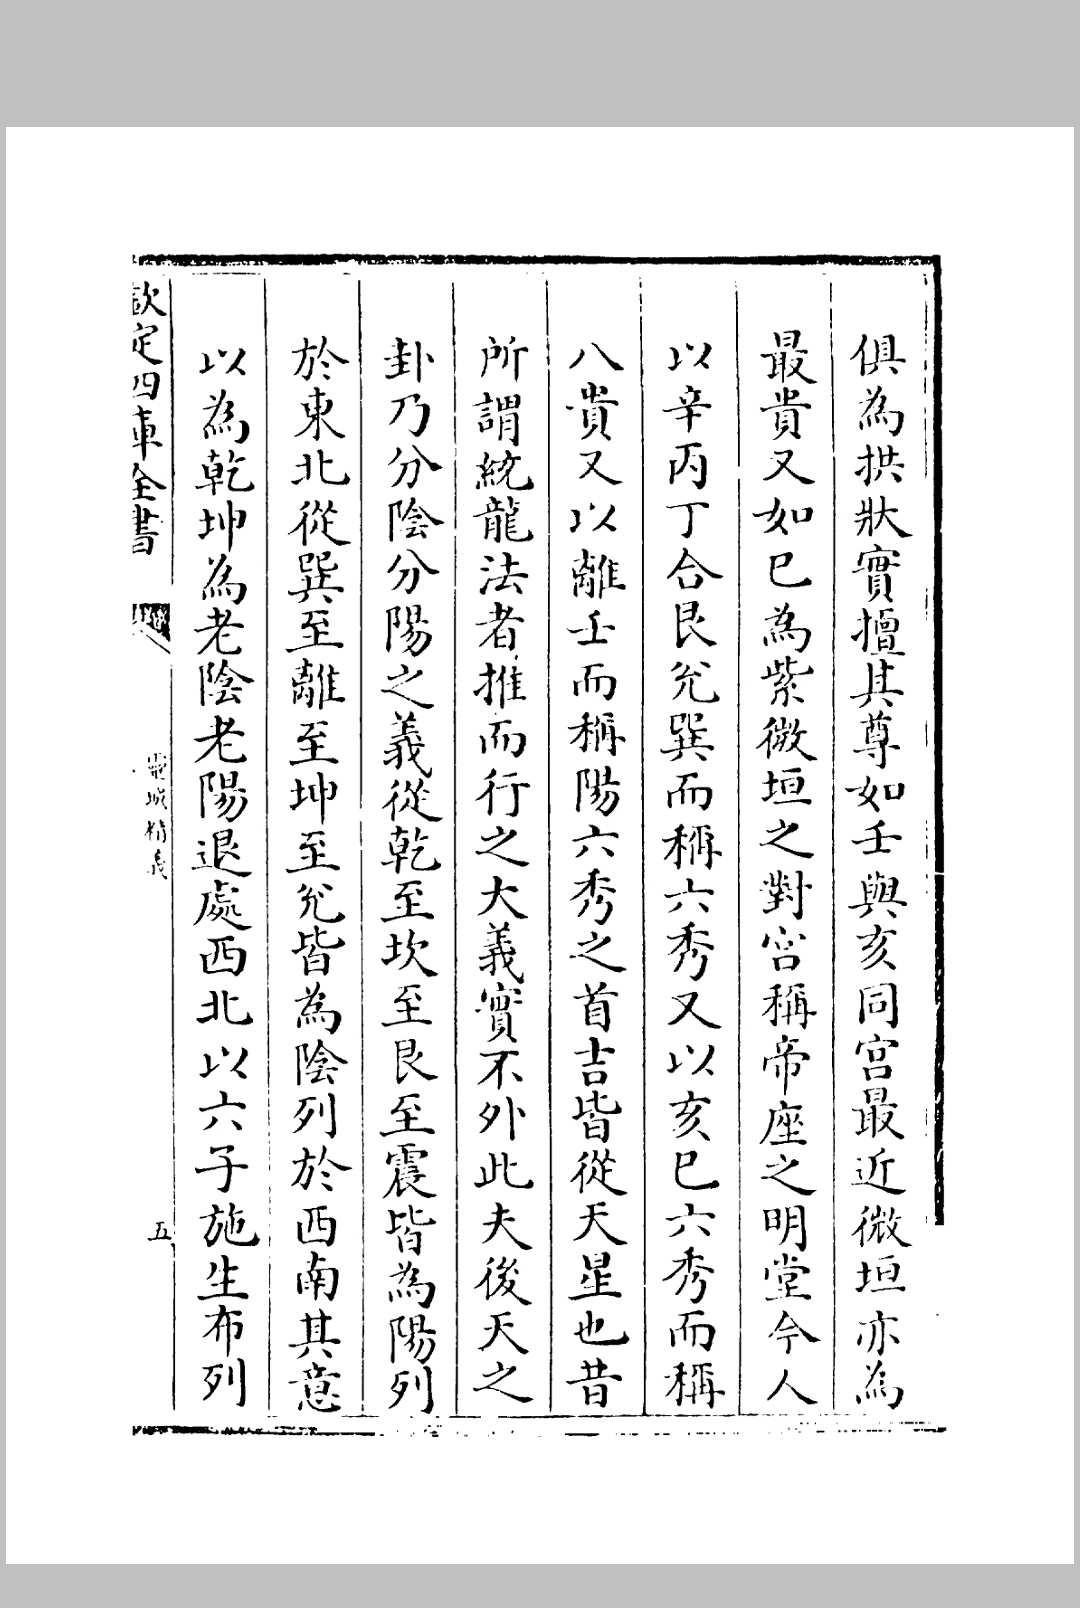 俱為拱狀實擅其尊如壬與亥同宫最近微垣亦為
最貴又如巳為紫微垣之對宫稱帝座之明堂今人
以辛丙丁合艮兊巽而稱六秀又以亥巳六秀而稱
八貴又以離壬而稱陽六秀之首吉皆從天星也昔
所謂統龍法者推而行之大義實不外此夫後天之
卦乃分陰分陽之義從乾至坎至艮至震皆為陽列
於東北從巽至離至坤至兊皆為陰列於西南其意
以為乾坤為老陰老陽退處西北以六子施生布列
欽定四庫全書
靈城精義
五